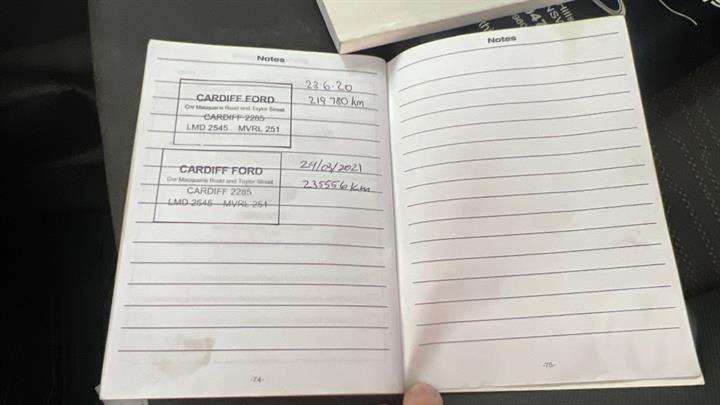 Notes
CARDIFF FORD
Cnr Macquarie Road and Taylor Street
CARDIFF 2285
LMD 2545 MVRL 251
23.6.20
219 780 km
CARDIFF FORD
Cnr Macquarie Road and Taylor Street
CARDIFF 2285
LMD 2545 MVRL 251
29/03/2021
235556 km
-74-
Notes
-75-